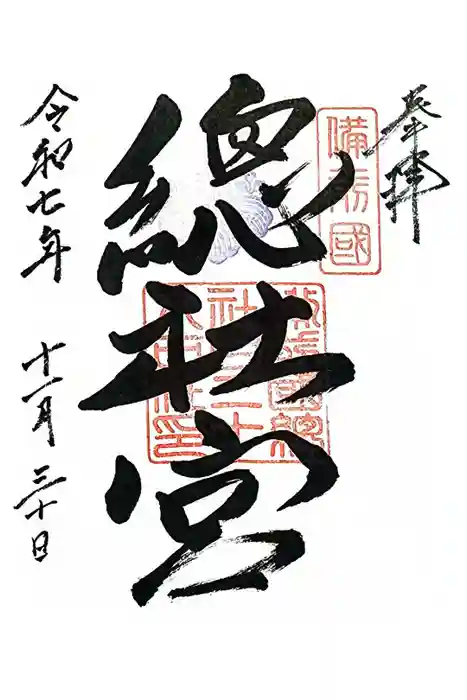 奉拝
備前國
總社宮
令和七年 十一月 三十日